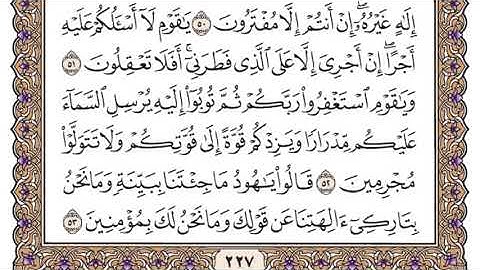 إِلَٰهٍ غَيْرُهُۥٓ إِنْ أَنتُمْ إِلَّا مُفْتَرُونَ ٥٠ يَٰقَوْمِ لَآ أَسْـَٔلُكُمْ عَلَيْهِ
أَجْرًا إِنْ أَجْرِىَ إِلَّا عَلَى ٱلَّذِى فَطَرَنِىٓ أَفَلَا تَعْقِلُونَ ٥١
وَيَٰقَوْمِ ٱسْتَغْفِرُوا۟ رَبَّكُمْ ثُمَّ تُوبُوٓا۟ إِلَيْهِ يُرْسِلِ ٱلسَّمَآءَ
عَلَيْكُم مِّدْرَارًا وَيَزِدْكُمْ قُوَّةً إِلَىٰ قُوَّتِكُمْ وَلَا تَتَوَلَّوْا۟
مُجْرِمِينَ ٥٢ قَالُوا۟ يَٰهُودُ مَا جِئْتَنَا بِبَيِّنَةٍ وَمَا نَحْنُ
بِتَارِكِىٓ ءَالِهَتِنَا عَن قَوْلِكَ وَمَا نَحْنُ لَكَ بِمُؤْمِنِينَ ٥٣
٢٢٧